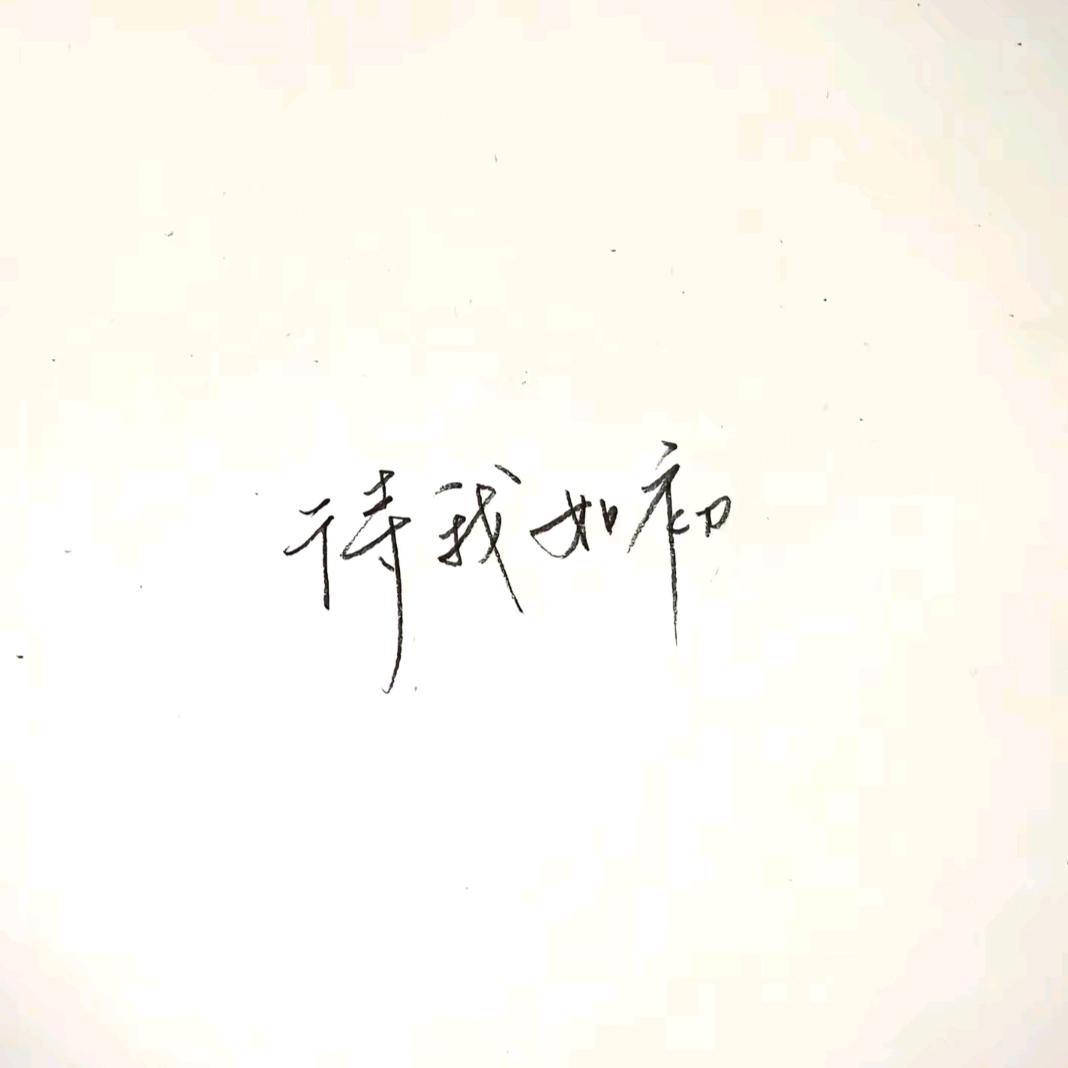 待我如初